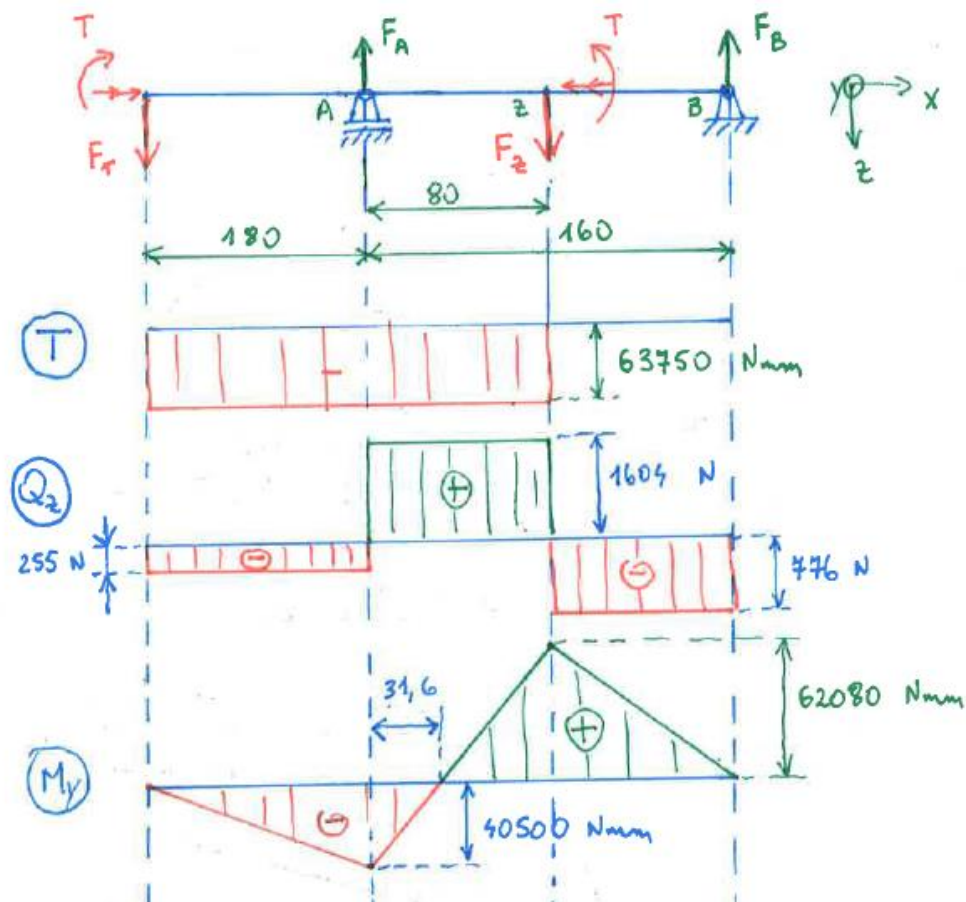 T F_A T F_B
A z B y x
F_T F_z z
80
180 160
T
63750 Nmm
Q_z + 1604 N
255 N - - 776 N
31,6
62080 Nmm
M_y +
- 40500 Nmm